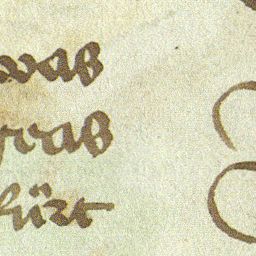 was
gras
fürt